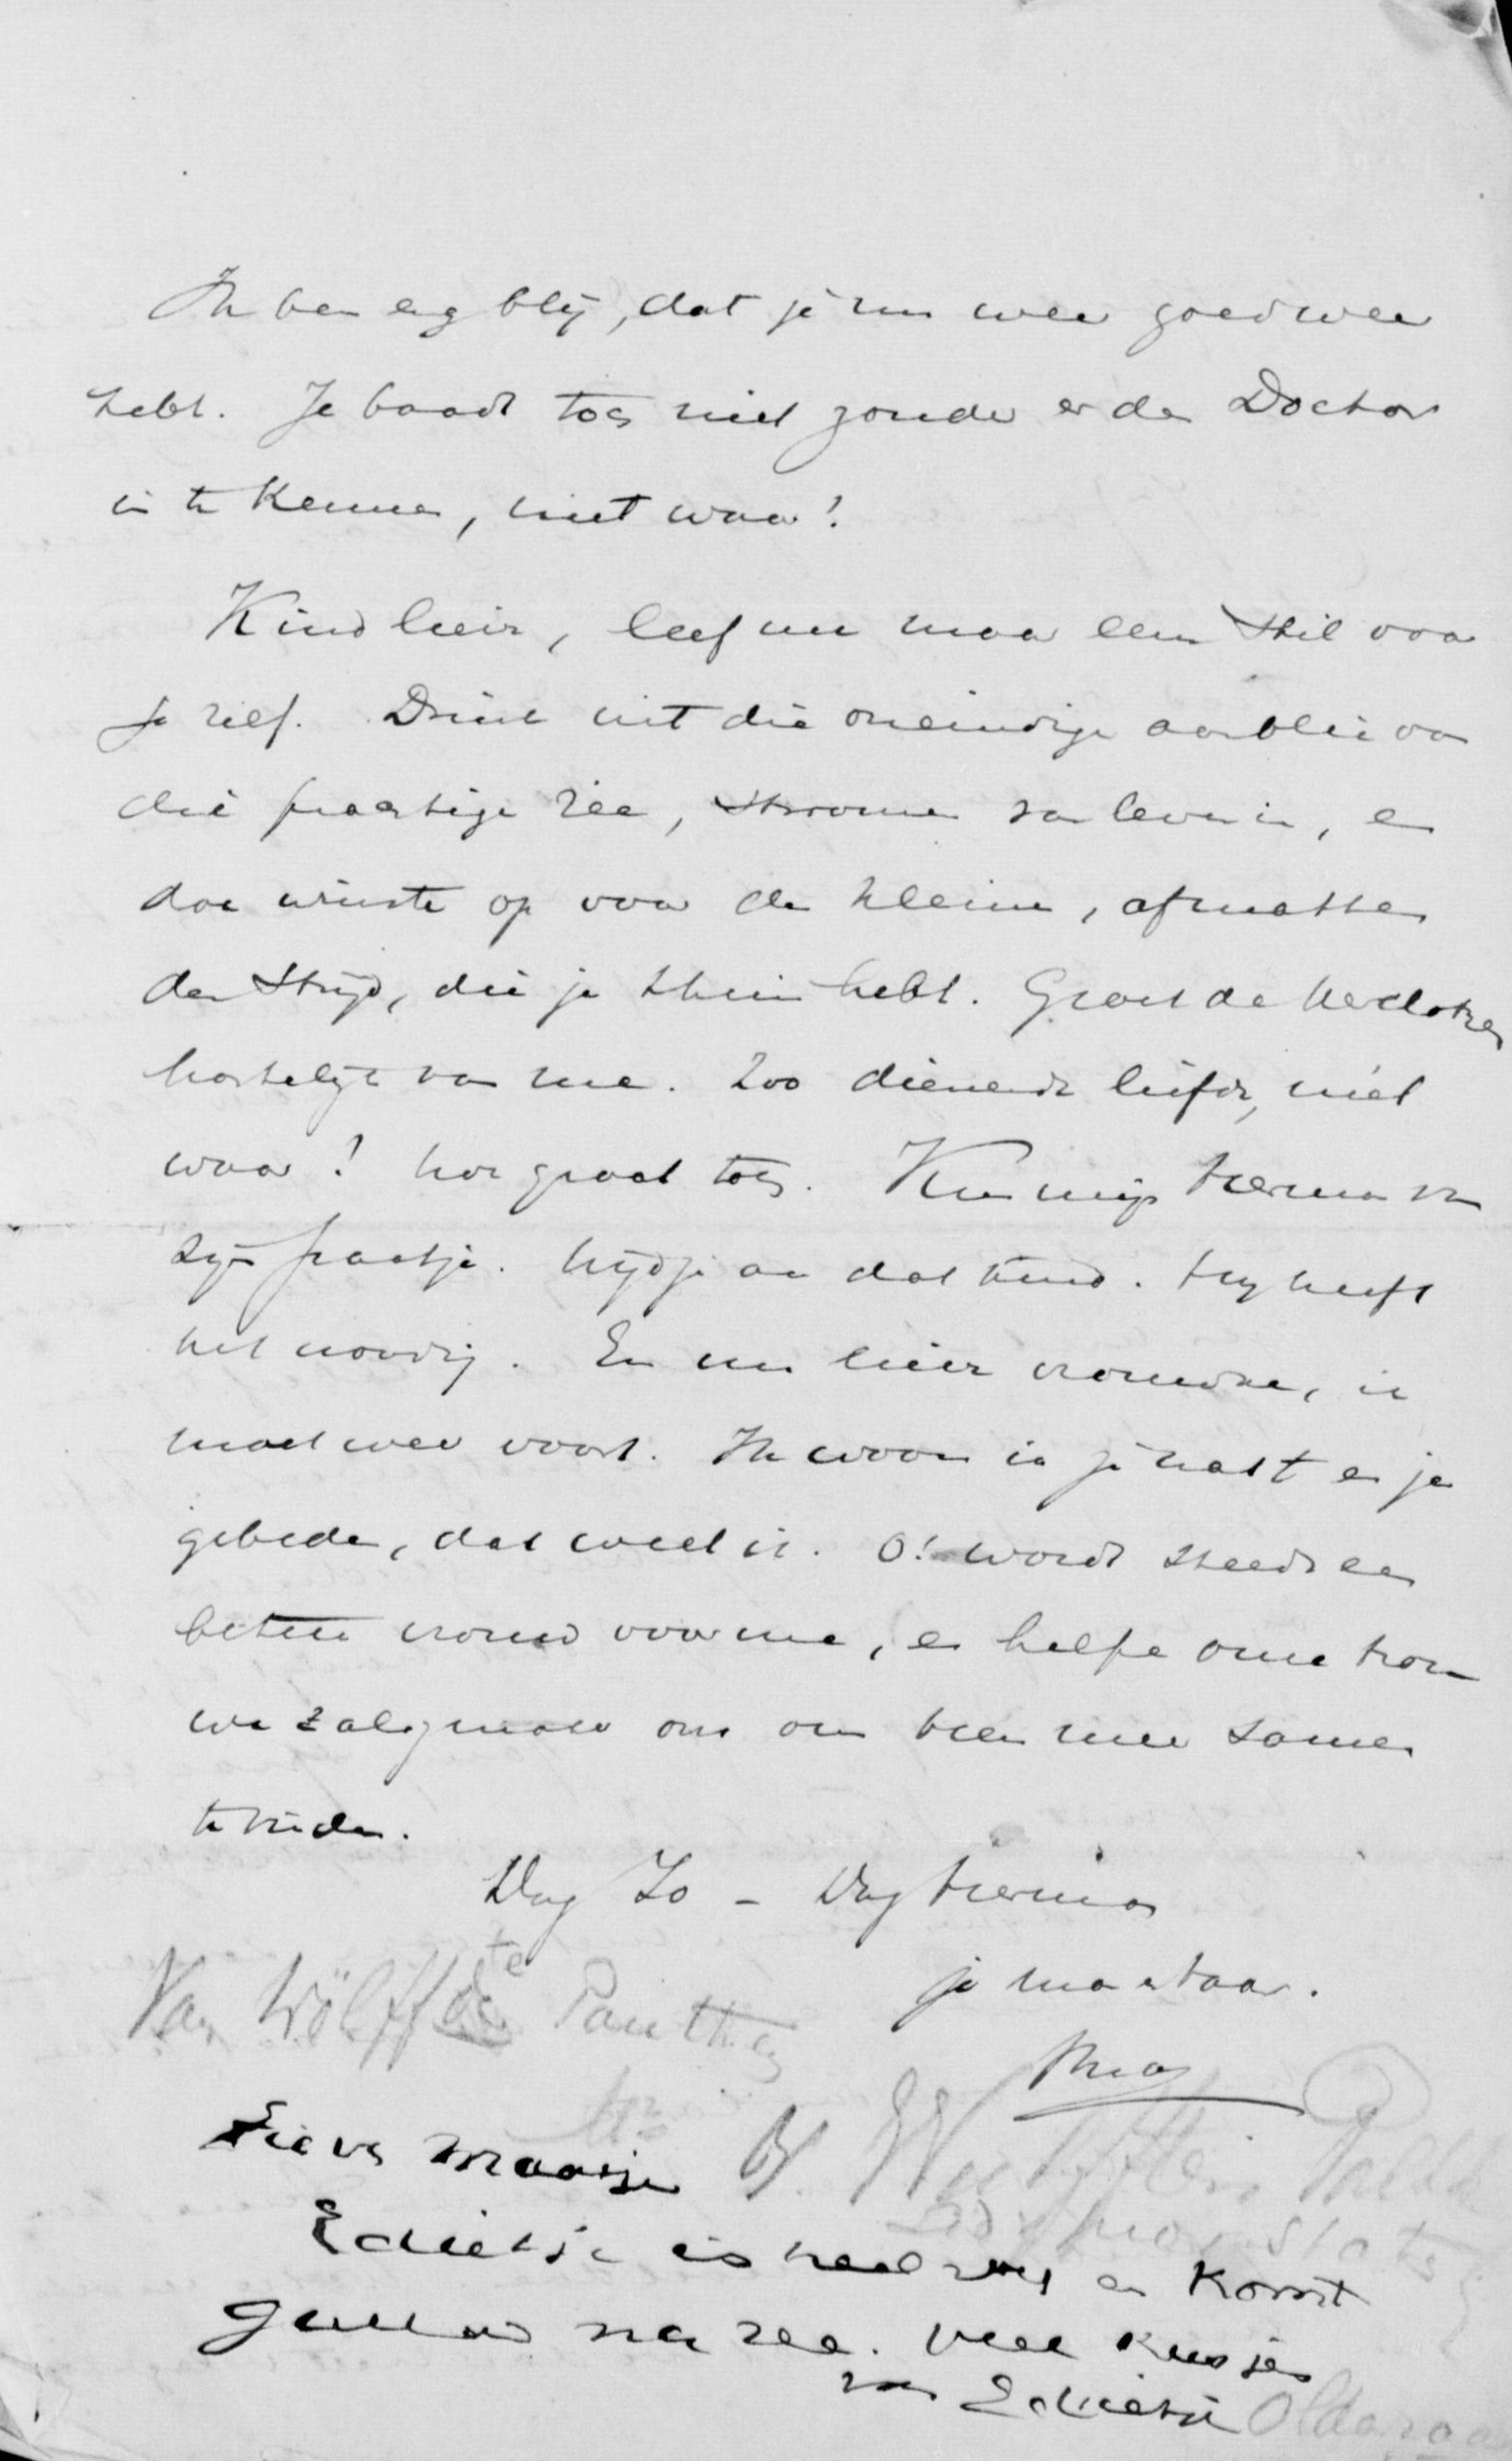 Ik ben erg blij, dat je nu weer goed weer
hebt. Je baadt toch niet zonder er den Doctor
in te kennen, niet waar!
Kind lief, leef nu maar een stil voor
je zelf. Drink uit die oneindige aanblik van
die prachtige zee, stroomen van leven in, en
doe winste op voor den kleinen, afmatten
den strijd, die je thuis hebt. Groet de
hartelijk van me. Zoo dienende liefde, niet
waar! hoe groot toch. Kus mijn Herman
zijn praatje. Wijd je aan dat kind. Hij heeft
het noodig. En nu lieve vrouwke, ik
moet weer voort. Ik woon in je hart en je
gebeden, dat weet ik. O! wordt steeds een
betere vrouw voor me, en helpe onze trou
we zaligmaker ons om hem meer samen
te vinden.
Dag Jo - Dag Herman
je
Van Wölff de Panthe
Lieve Maatje
Edietje is heel zoet en komt
gauw na zee. Veel kusjes
van Edietje